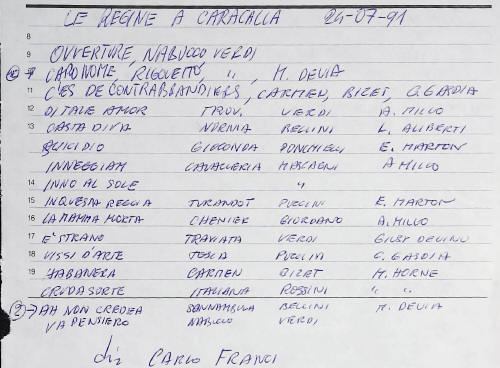 LE REGINE A CARACALLA 24-07-91
8
9 OUVERTURE, NABUCCO VERDI
CARO NOME, RIGOLETTO, " , M. DEVIA
11 C'ES DE CONTRABBANDIERS, CARMEN, BIZET, C. GASDIA
12 DI TALE AMOR TROV. VERDI A. MILLO
13 CASTA DIVA NORMA BELLINI L. ALIBERTI
SUICIDIO GIOCONDA PONCHIELLI E. MARTON
INNEGGIAM CAVALLERIA MASCAGNI A MILLO
14 INNO AL SOLE "
15 IN QUESTA REGGIA TURANDOT PUCCINI E. MARTON
16 LA MAMMA MORTA CHENIER GIORDANO A. MILLO
17 E' STRANO TRAVIATA VERDI GIUSY DEVINU
18 VISSI D'ARTE TOSCA PUCCINI C. GASDIA
19 HABANERA CARMEN BIZET M. HORNE
CRUDA SORTE ITALIANA ROSSINI " "
(2) → AH NON CREDEA SONNAMBULA BELLINI M. DEVIA
VA PENSIERO NABUCCO VERDI
dir CARLO FRANCI